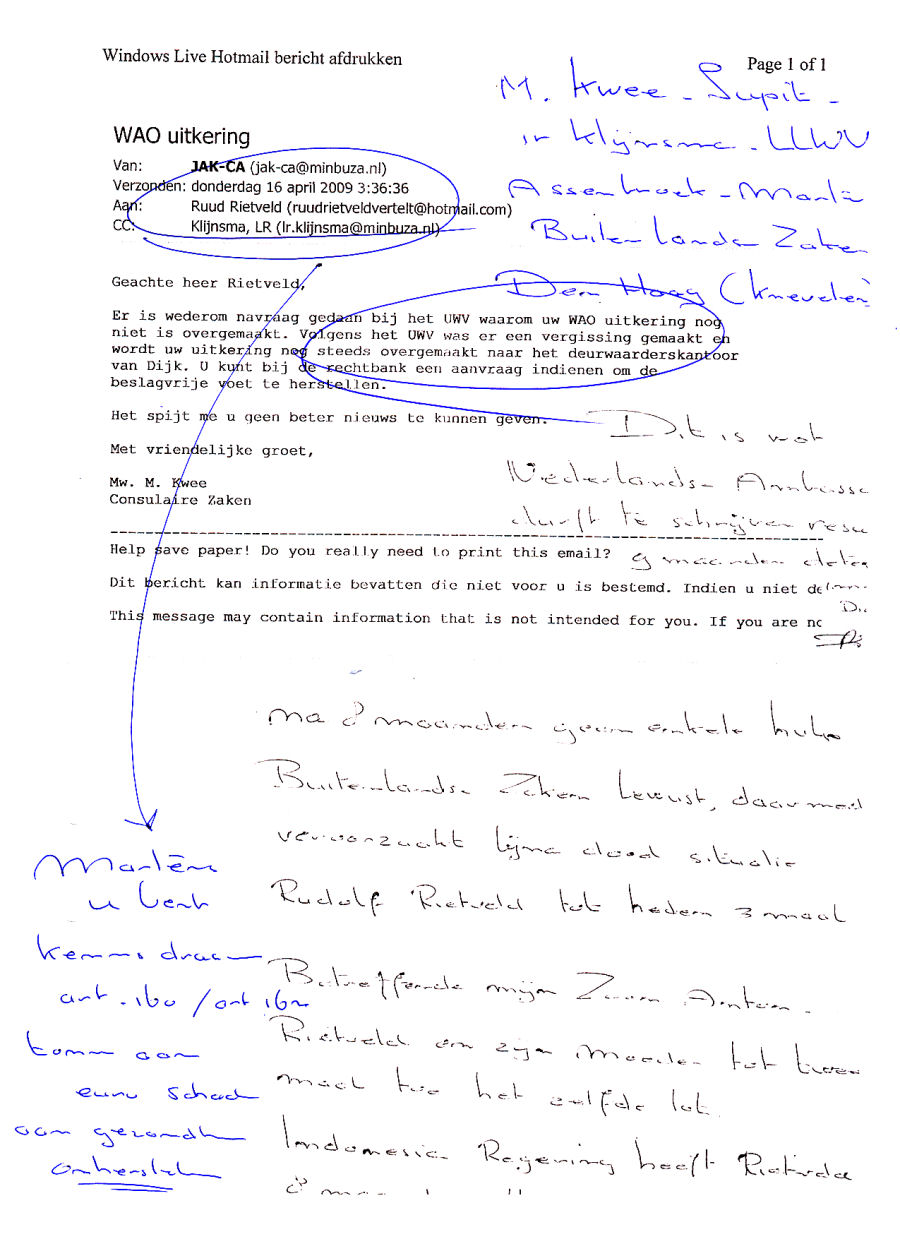 Windows Live Hotmail bericht afdrukken
Page 1 of 1
M. Kwee - Supit -
Klijnsma - UWV
Assenbroek - Marlè
Buitenlandse Zaken
Den Haag (Knevelen)
WAO uitkering
Van: JAK-CA (jak-ca@minbuza.nl)
Verzonden: donderdag 16 april 2009 3:36:36
Aan: Ruud Rietveld (ruudrietveldvertelt@hotmail.com)
CC: Klijnsma, LR (lr.klijnsma@minbuza.nl)
Geachte heer Rietveld,
Er is wederom navraag gedaan bij het UWV waarom uw WAO uitkering nog
niet is overgemaakt. Volgens het UWV was er een vergissing gemaakt en
wordt uw uitkering nog steeds overgemaakt naar het deurwaarderskantoor
van Dijk. U kunt bij de rechtbank een aanvraag indienen om de
beslagvrije voet te herstellen.
Het spijt me u geen beter nieuws te kunnen geven.
Met vriendelijke groet,
Mw. M. Kwee
Consulaire Zaken
Dit is wat
Nederlandse Ambassa
durft te schrijven
9 maanden
Help save paper! Do you really need to print this email?
Dit bericht kan informatie bevatten die niet voor u is bestemd. Indien u niet de
This message may contain information that is not intended for you. If you are no
na 8 maanden geen enkele hulp
Buitenlandse Zaken bewust, daarmed
veroorzaakt bijna dood situatie
Rudolf Rietveld tot heden 3 maal
Betreffende mijn Zoon Anton.
Rietveld en zijn Moeder tot twee
maal toe het zelfde lot.
Indonesia Regering heeft Rietvda
Marlène
u bent
kennis draa
art. 160 / art 162
komm aan
euru schad
aan gezondh
onherstel